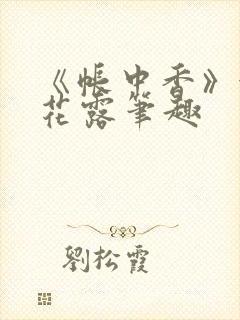 《帐中香》
花露笔趣
劉松霞